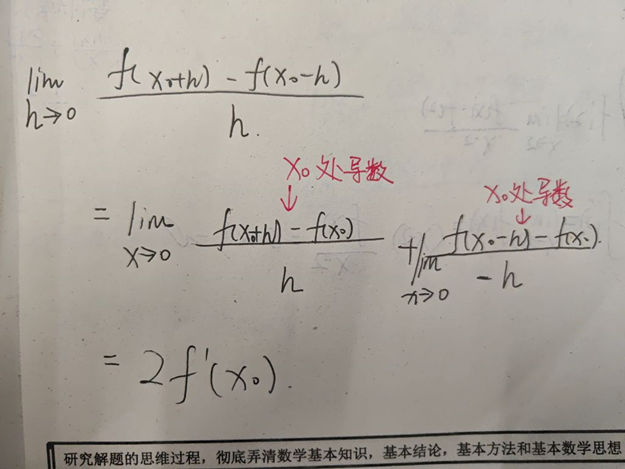 lim h→0 f(x₀+h) - f(x₀-h) / h.
x₀处导数 x₀处导数
= lim x→0 f(x₀+h) - f(x₀) / h + lim x→0 f(x₀-h) - f(x₀). / -h
= 2f'(x₀).
研究解题的思维过程，彻底弄清数学基本知识，基本结论，基本方法和基本数学思想